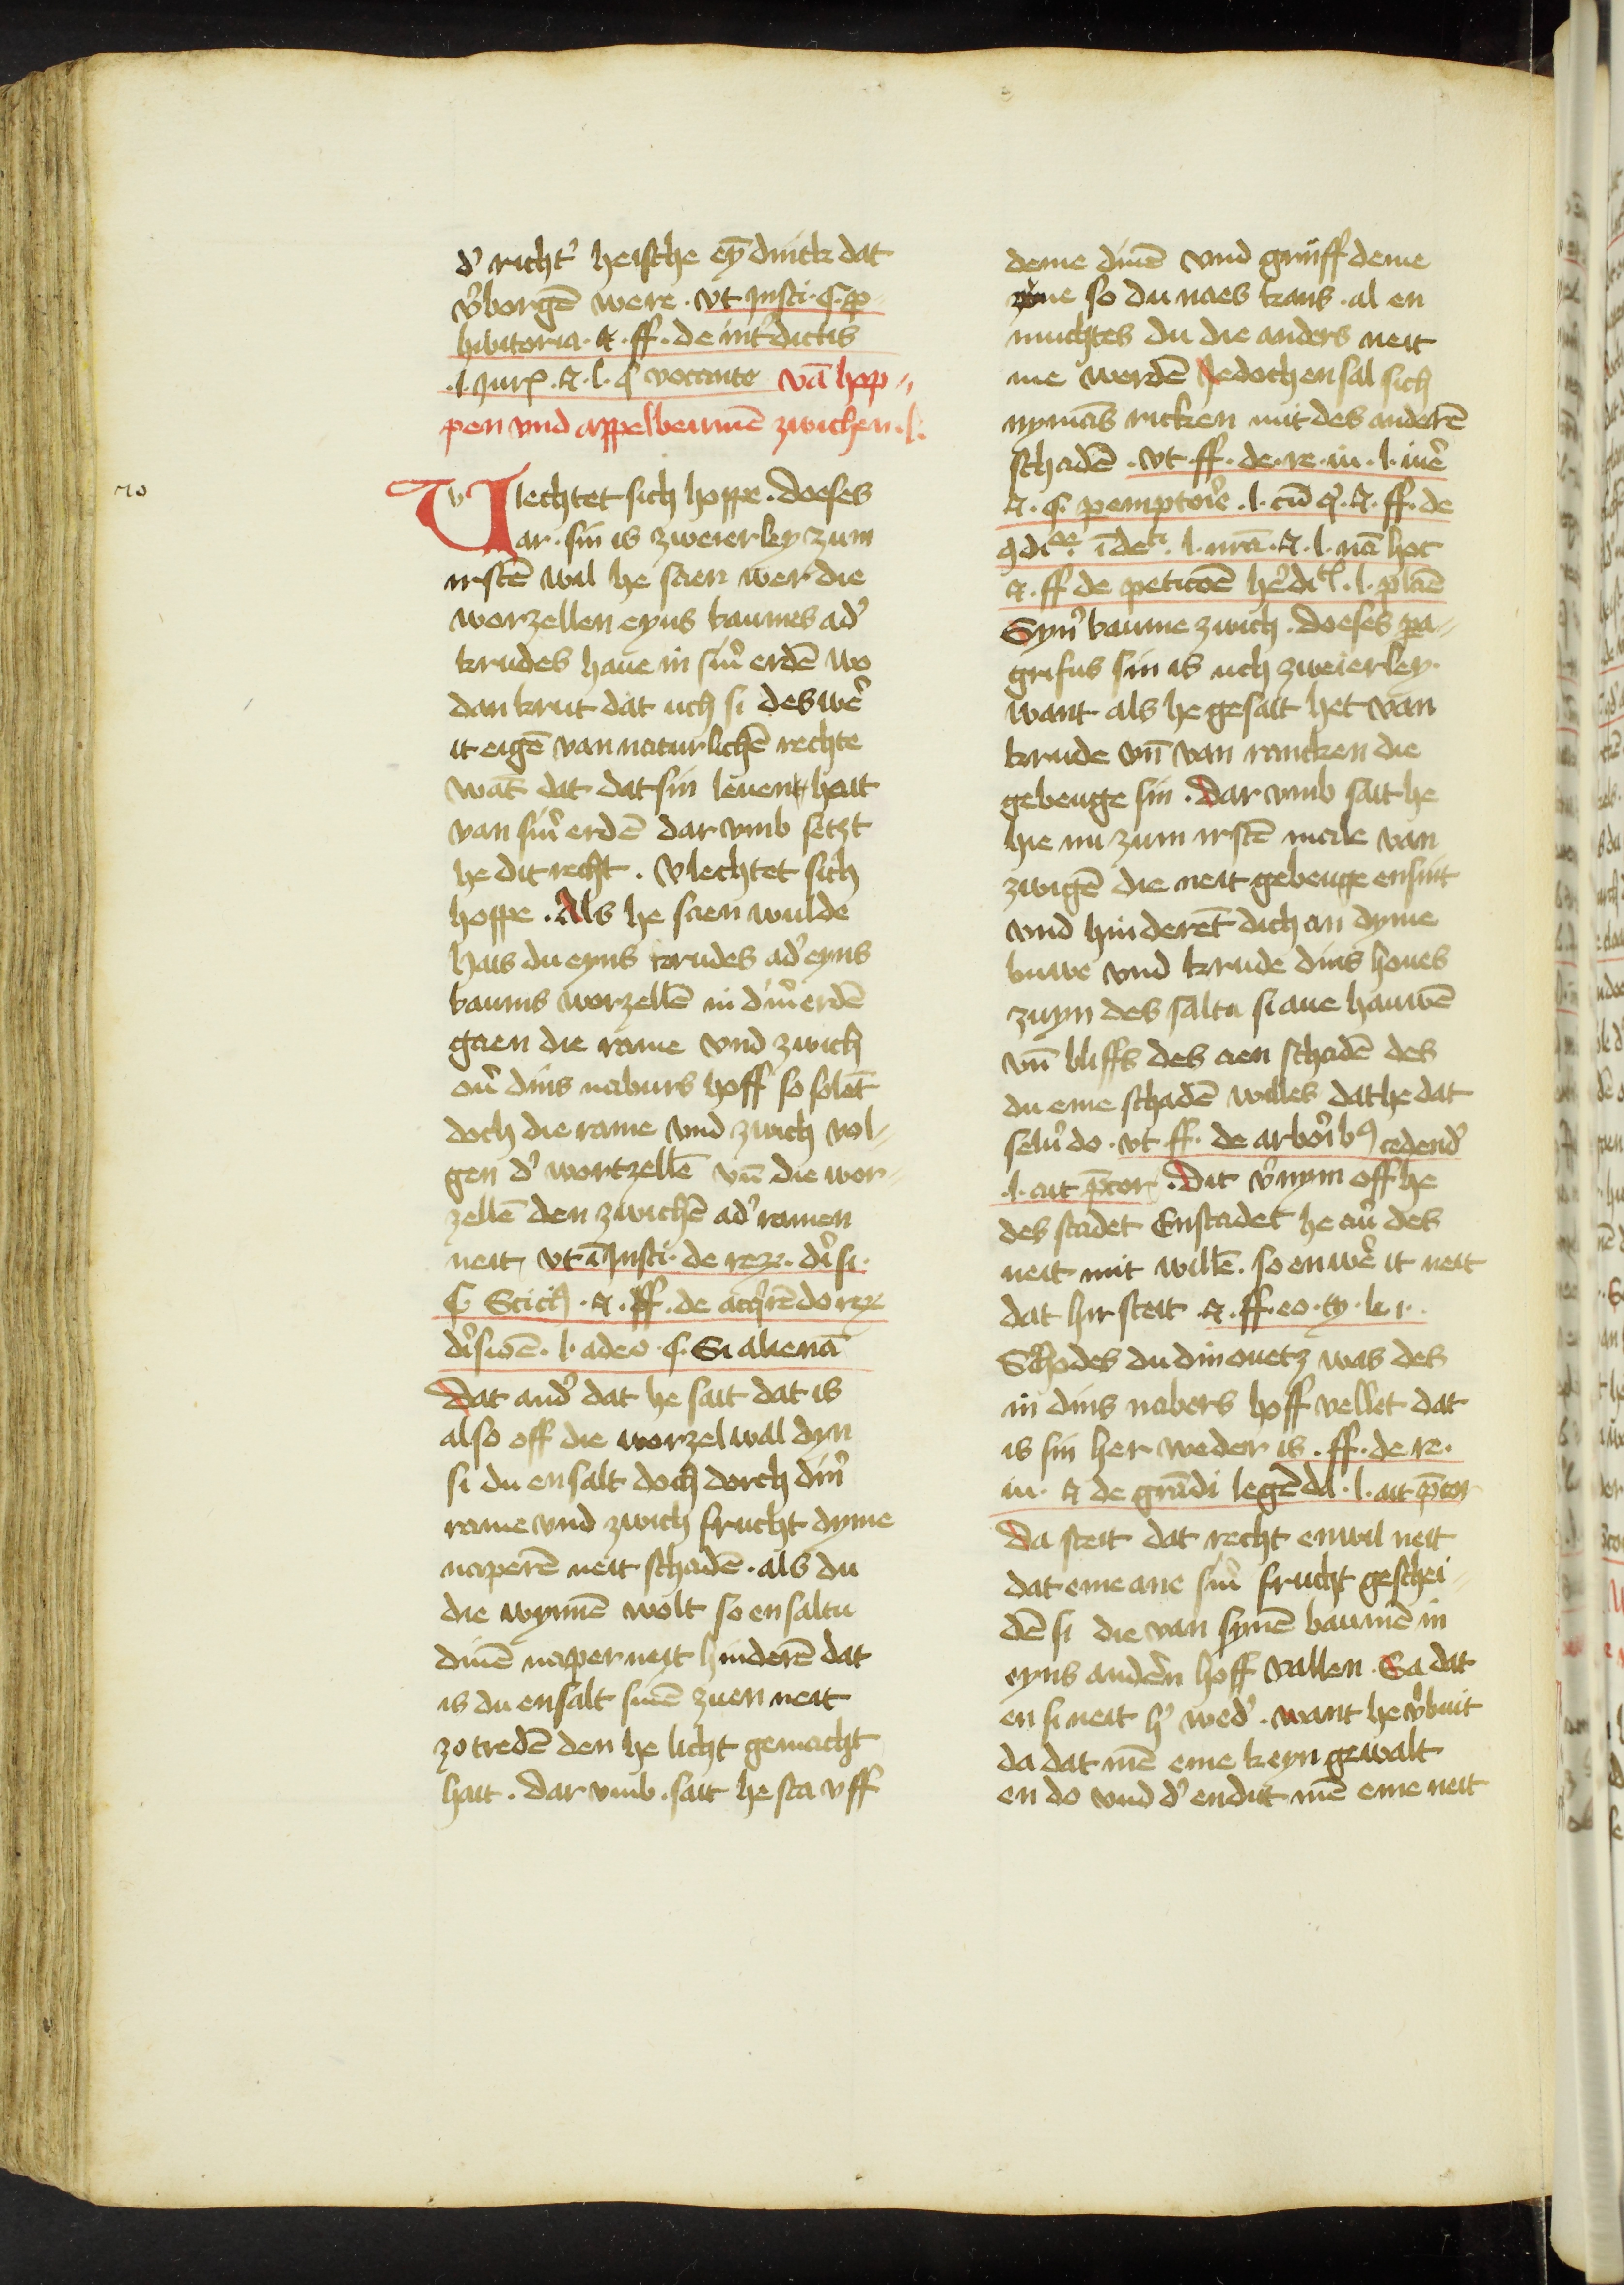 d' richt' heische eȳ dinck dat
v'borgē were . vt Insti . §. p̱
hibitoria . ⁊ . ff . de int'dictis
.l. Jurꝭ . ⁊ . l. q vocante vā hop-
pen vnd appelbeumē zwichen . l.
Vlechtet sich hoppe . doeses
ar . sin is zweierley zum
irstē wil he saen wer die
worzellen eyns baumes ad'
krudes haue in sin' erdē wo
dan krut dat uch si des we'
it eigē van naturlichē rechte
wāt dat dat sin leuent hait
van sin' erdē dar vmb setzt
he dit recht . Vlechtet sich
hoppe . Als he saen wulde
hais du eyns krudes ad' eyns
baums worzellē in din' erdē
gaen die rame vnd zwich
ou' dins naburs hoff so solēt
doch die rame vnd zwich vol-
gen d' wortzellē vn̄ die wor-
zellē den zwichē ad' ramen
neit vt ī Insti . de reꝝ . di'si .
§ Stich . ⁊ . ff . de acq'rēdo reꝝ
di'sioē . l. adeo . §. Si alienā
Dat and' dat he sait dat is
also off die worzel wal dyn
si du en salt doch dorch din'
rame vnd zwich frucht dyme
naperē neit schadē . als du
die wynnē wolt so en saltu
dinē naper neit hinderē dat
is du en salt sinē zuen neit
zo tredē den he licht gemacht
hait . dar vmb . sait he sta vff
70
deme dinē vnd gruff deme
so du naes kans . al en
muchtes du die anders neit
me werdē Jedoch en sal sich
nymās ricken mit des anderē
schadē . vt . ff . de . re . iu . l. iur'
⁊ . §. pemptor'e . l. cū q' . ⁊ . ff . de
ꝯdic'oe . īdeti . l. nrā . ⁊ . l. nā hoc
⁊ . ff de peticoē he'dit' . l. plaē
Syn' baume zwich . doeses pa-
grifus sin is uch zweierley .
want als he gesait het van
krude vn̄ van rancken die
gebeuge sin . Dar vmb sait he
hie nu zum irstē male van
zwigē die neit gebeuge en sint
vnd hinderēt dich an dyme
buwe vnd krude dins houes
zuyn des saltu si aue hauwē
vn̄ bliffs des aen schadē des
du eme schadē willes dat he dat
selu' do . vt . ff . de arbor'bꝰ cedend'
.l. ait p̄tor . Dit v'nym off he
des stadet Enstadet he au' des
neit mit willē . so en we' it neit
dat hir steit . ⁊ . ff . eo . ty . l. 1 .
Schodes du din ouetz was des
in dins nabers hoff vellet dat
is sin her weder is . ff . de re .
iu . ⁊ de grādi legēda . l. ait p̄tor
Da steit dat recht enwil neit
dat eme ane sin' frucht geschei-
dē si die van synē baumē in
eyns ander'n hoff vallen . Sa dat
en si neit h' wed' . want he v'buit
da dat mē eme keyn gewalt
en do vnd d' en duit mē eme neit